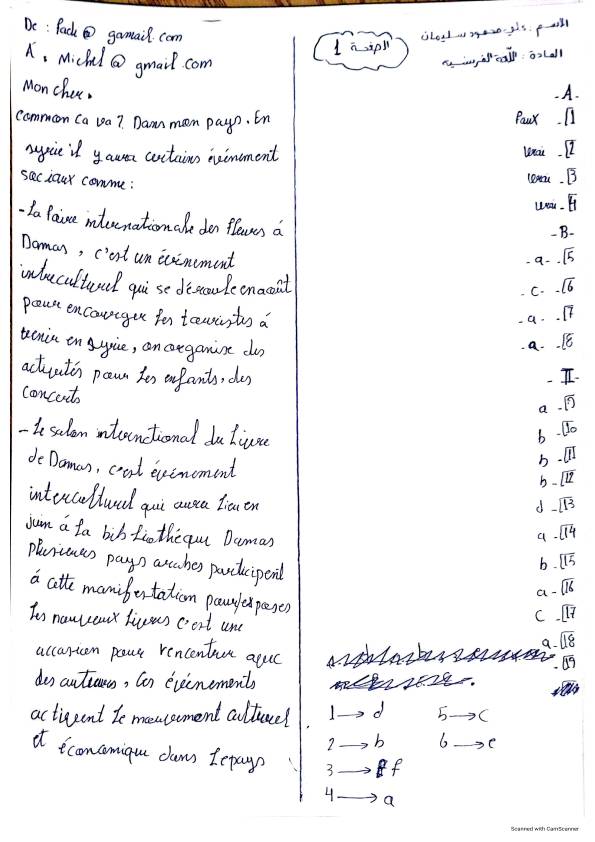 الاسم: علي محمود سليمان
المادة: اللغة الفرنسية
الصفحة 1
De : Fack@gamail.com
A , Michel@gmail.com
Mon cher,
Common Ca va ? Dans mon pays. En
syrie il y aura certains événement
sociaux comme :
- La Faire internationale des fleurs á
Damas, c'est un événement
intreculturel qui se déroule en août
pour encourger les touristes á
venir en syrie, on organise des
activités pour les enfants, des
concerts
- le salon international du livre
de Damas, c'est événement
interculturel qui aura lieu en
juin á la bibliothéque Damas
plusieurs pays arabes participent
á cette manifestation pour exposes
les nouveaux livres c'est une
occasion pour rencontrer avec
des auteurs, Ces événements
activent le mouvement culturel
et économique dans le pays
- A -
Faux - 1
Vrai - 2
Vrai - 3
Vrai - 4
- B -
- a - - 5
- c - - 6
- a - - 7
- a - - 8
- II -
a - 9
b - 10
b - 11
b - 12
d - 13
a - 14
b - 15
a - 16
C - 17
a - 18
- 19
1 → d
2 → b
3 → f
4 → a
5 → c
6 → e
Scanned with CamScanner